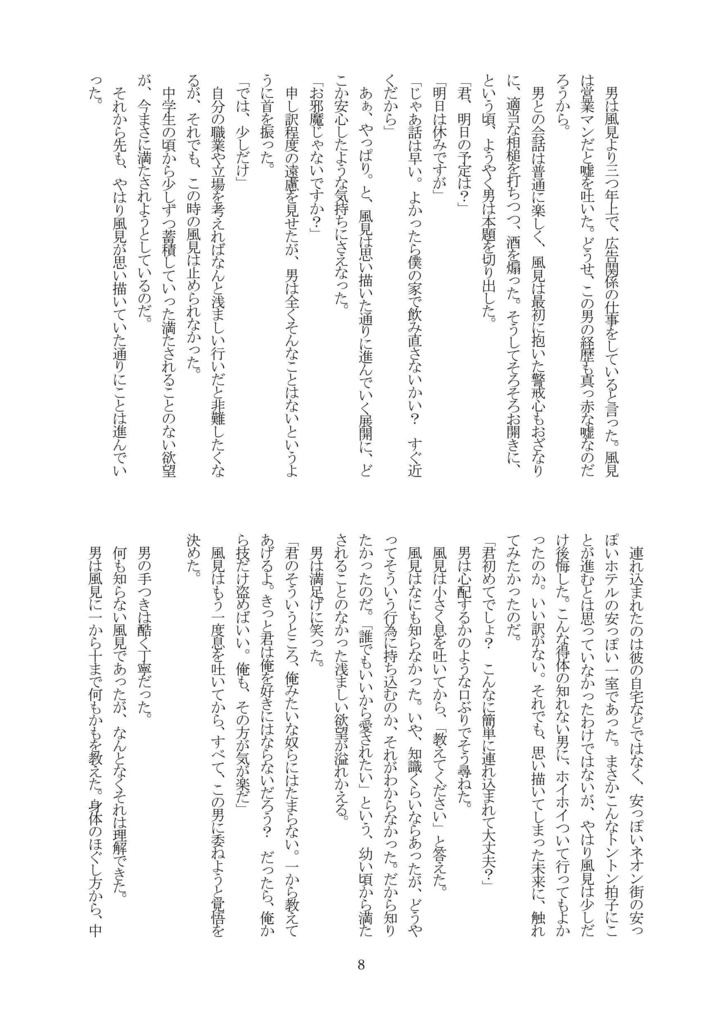 男は風見より三つ年上で、広告関係の仕事をしていると言った。風見
は営業マンだと嘘を吐いた。どうせ、この男の経歴も真っ赤な嘘なのだ
ろうから。
　男との会話は普通に楽しく、風見は最初に抱いた警戒心もおざなり
に、適当な相槌を打ちつつ、酒を煽った。そうしてそろそろお開きに、
という頃、ようやく男は本題を切り出した。
「君、明日の予定は？」
「明日は休みですが」
「じゃあ話は早い。よかったら僕の家で飲み直さないかい？　すぐ近
くだから」
　あぁ、やっぱり。と、風見は思い描いた通りに進んでいく展開に、ど
こか安心したような気持ちにさえなった。
「お邪魔じゃないですか？」
　申し訳程度の遠慮を見せたが、男は全くそんなことはないというよ
うに首を振った。
「では、少しだけ」
　自分の職業や立場を考えればなんと浅ましい行いだと非難したくな
るが、それでも、この時の風見は止められなかった。
　中学生の頃から少しずつ蓄積していった満たされることのない欲望
が、今まさに満たされようとしているのだ。
　それから先も、やはり風見が思い描いていた通りにことは進んでい
った。
　連れ込まれたのは彼の自宅などではなく、安っぽいネオン街の安っ
ぽいホテルの安っぽい一室であった。まさかこんなトントン拍子にこ
とが進むとは思っていなかったわけではないが、やはり風見は少しだ
け後悔した。こんな得体の知れない男に、ホイホイついて行ってもよか
ったのか。いい訳がない。それでも、思い描いてしまった未来に、触れ
てみたかったのだ。
「君初めてでしょ？　こんなに簡単に連れ込まれて大丈夫？」
　男は心配するかのような口ぶりでそう尋ねた。
　風見は小さく息を吐いてから、「教えてください」と答えた。
　風見はなにも知らなかった。いや、知識くらいならあったが、どうや
ってそういう行為に持ち込むのか、それがわからなかった。だから知り
たかったのだ。「誰でもいいから愛されたい」という、幼い頃から満た
されることのなかった浅ましい欲望が溢れかえる。
　男は満足げに笑った。
「君のそういうところ、俺みたいな奴らにはたまらない。一から教えて
あげるよ。きっと君は俺を好きにはならないだろう？　だったら、俺か
ら技だけ盗めばいい。俺も、その方が気が楽だ」
　風見はもう一度息を吐いてから、すべて、この男に委ねようと覚悟を
決めた。
　男の手つきは酷く丁寧だった。
　何も知らない風見であったが、なんとなくそれは理解できた。
　男は風見に一から十まで何もかもを教えた。身体のほぐし方から、中
8